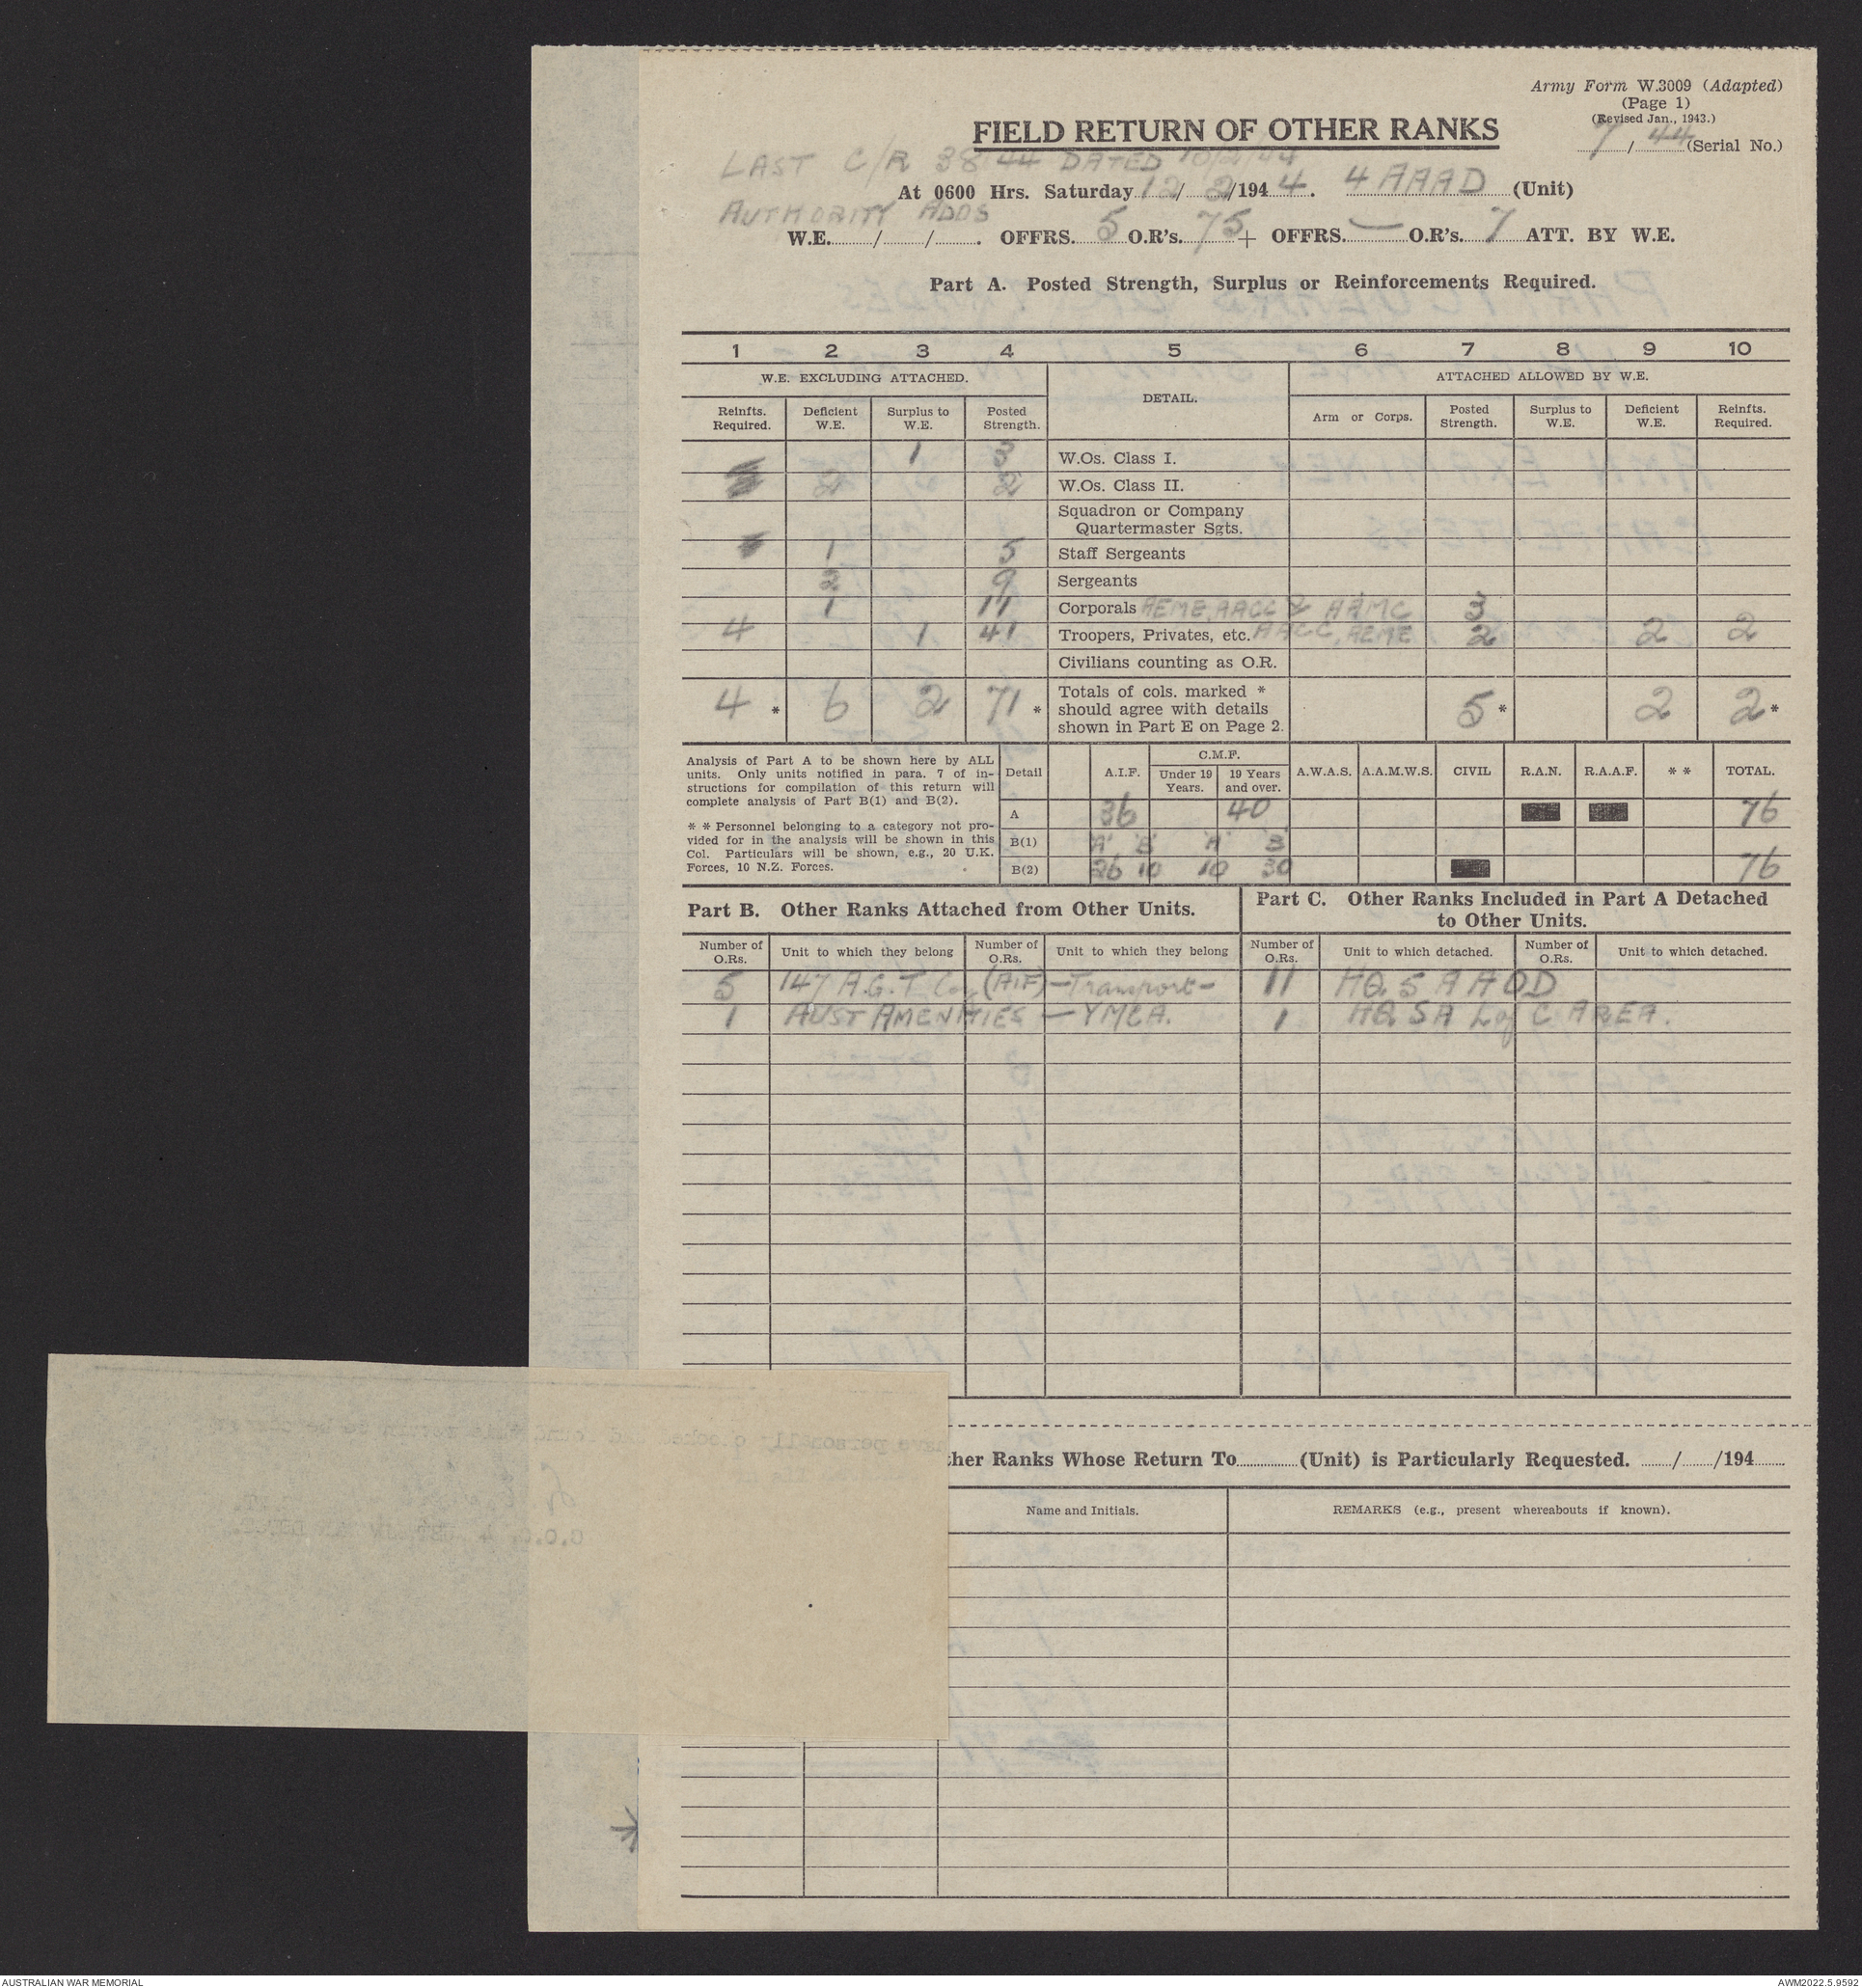 Army Form W.3009 (Adapted)
(Page 1)
(Revised Jan., 1943.)
7/44 (Serial No.)
FIELD RETURN OF OTHER RANKS
LAST C/R 38/44 DATED 10/2/44
At 0600 Hrs. Saturday 12/2/1944. 4 AAAD (Unit)
AUTHORITY ADOS
W.E. / / . OFFRS. 5 O.R's. 75 + OFFRS. — O.R's. 7 ATT. BY W.E.
Part A. Posted Strength, Surplus or Reinforcements Required.
1 2 3 4 5 6 7 8 9 10
W.E. EXCLUDING ATTACHED. DETAIL. ATTACHED ALLOWED BY W.E.
Reinfts. Required. Deficient W.E. Surplus to W.E. Posted Strength. Arm or Corps. Posted Strength. Surplus to W.E. Deficient W.E. Reinfts. Required.
1 3 W.Os. Class I.
2 2 W.Os. Class II.
Squadron or Company
Quartermaster Sgts.
1 5 Staff Sergeants
2 9 Sergeants
1 11 Corporals AEME, AACC & AAMC 3
4 1 41 Troopers, Privates, etc. AACC, AEME 2 2 2
Civilians counting as O.R.
4 * 6 2 71 * Totals of cols. marked * should agree with details shown in Part E on Page 2. 5 * 2 2 *
Analysis of Part A to be shown here by ALL
units. Only units notified in para. 7 of in-
structions for compilation of this return will
complete analysis of Part B(1) and B(2).
* * Personnel belonging to a category not pro-
vided for in the analysis will be shown in this
Col. Particulars will be shown, e.g., 20 U.K.
Forces, 10 N.Z. Forces.
Detail A.I.F. C.M.F. Under 19 Years. 19 Years and over. A.W.A.S. A.A.M.W.S. CIVIL R.A.N. R.A.A.F. * * TOTAL.
A 36 40 76
B(1) 'A' 'B' 'A' 'B'
B(2) 26 10 10 30 76
Part B. Other Ranks Attached from Other Units.
Part C. Other Ranks Included in Part A Detached
to Other Units.
Number of O.Rs. Unit to which they belong Number of O.Rs. Unit to which they belong Number of O.Rs. Unit to which detached. Number of O.Rs. Unit to which detached.
5 147 A.G.T Coy (AIF) — Transport — 11 HQ 5 AAOD
1 AUST AMENITIES — YMCA. 1 HQ SA L of C AREA.
ther Ranks Whose Return To (Unit) is Particularly Requested. / /194
Name and Initials. REMARKS (e.g., present whereabouts if known).
AUSTRALIAN WAR MEMORIAL
AWM2022.5.9592